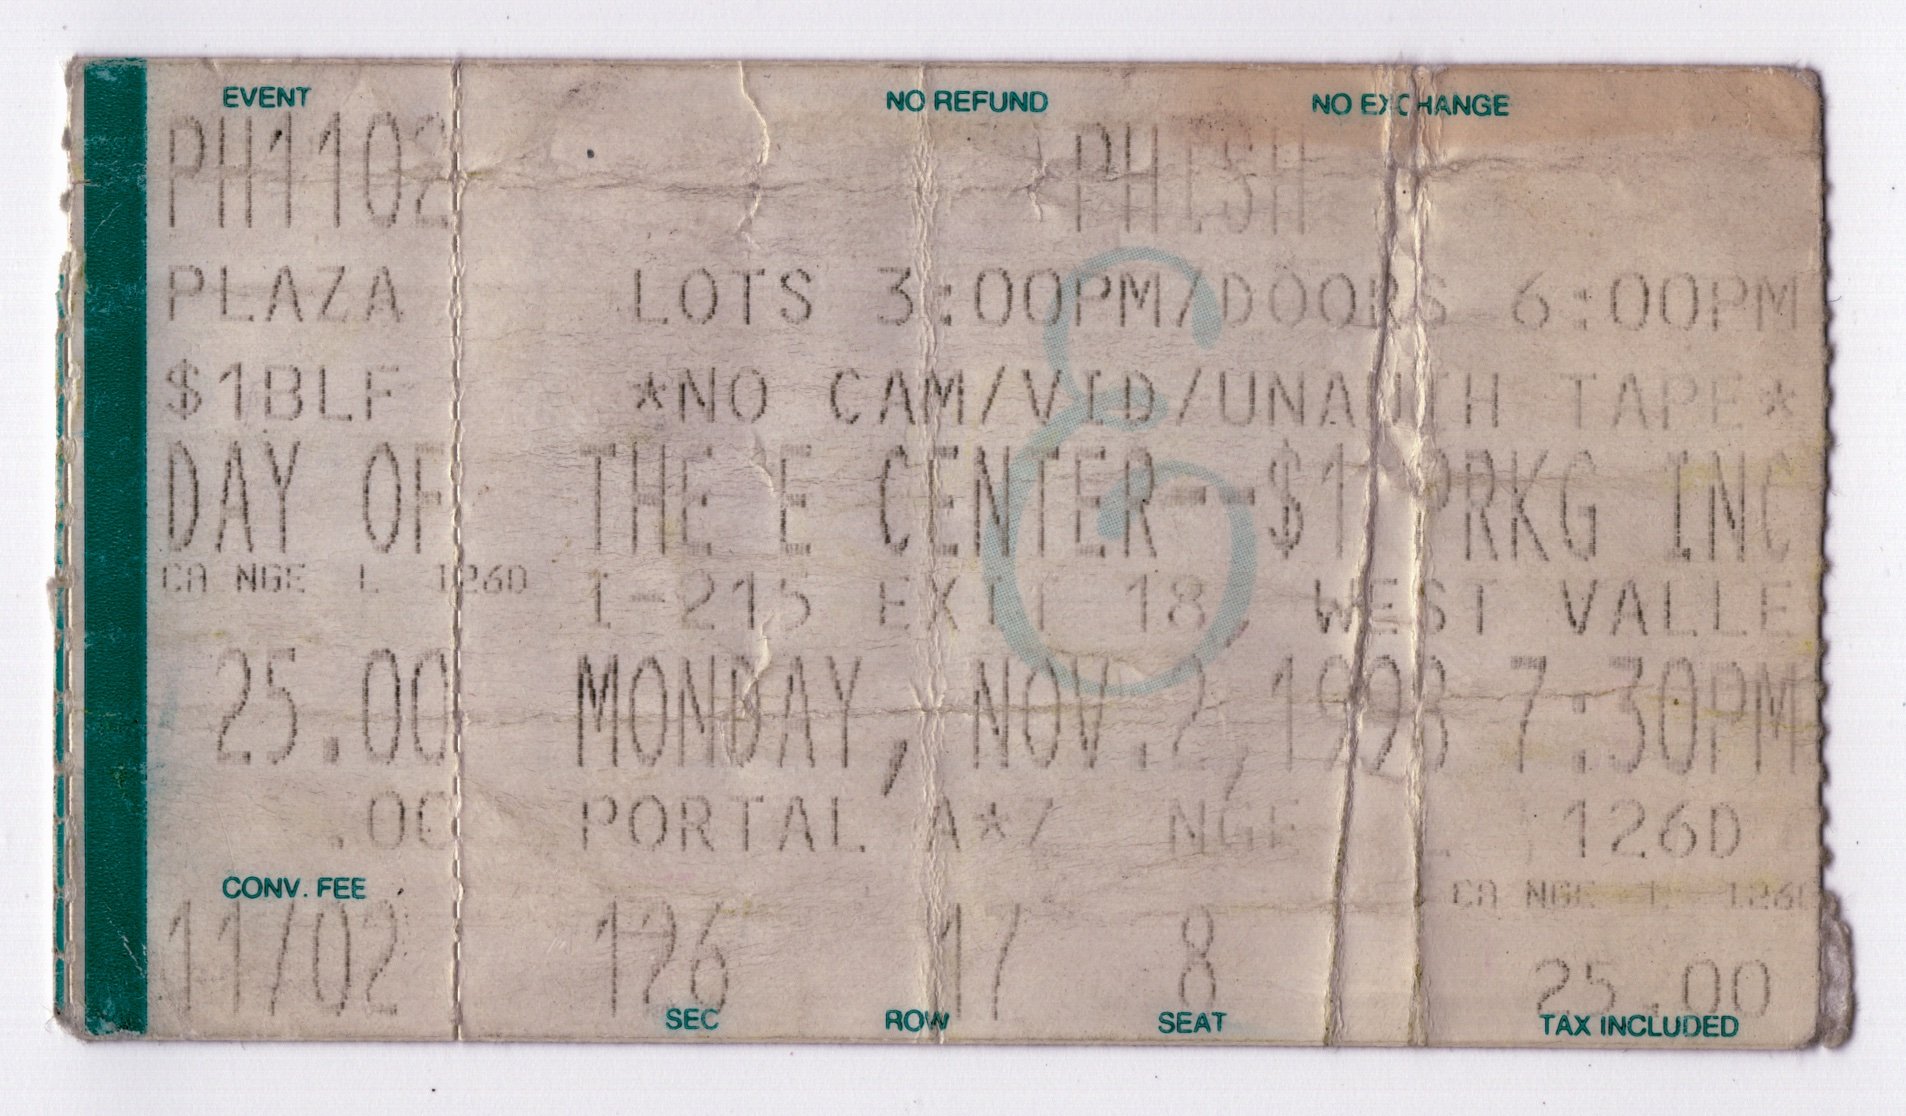 EVENT NO REFUND NO EXCHANGE
PH1102 PHISH
PLAZA LOTS 3:00PM/DOORS 6:00PM
$1BLF *NO CAM/VID/UNAUTH TAPE*
DAY OF THE E CENTER--$1 PRKG INC
CA NGE L 126D I-215 EXIT 18, WEST VALLE
25.00 MONDAY, NOV.2,1998 7:30PM
.00 PORTAL A*7 NGE 126D
CONV. FEE CA NGE L 126D
11/02 126 17 8 25.00
SEC ROW SEAT TAX INCLUDED